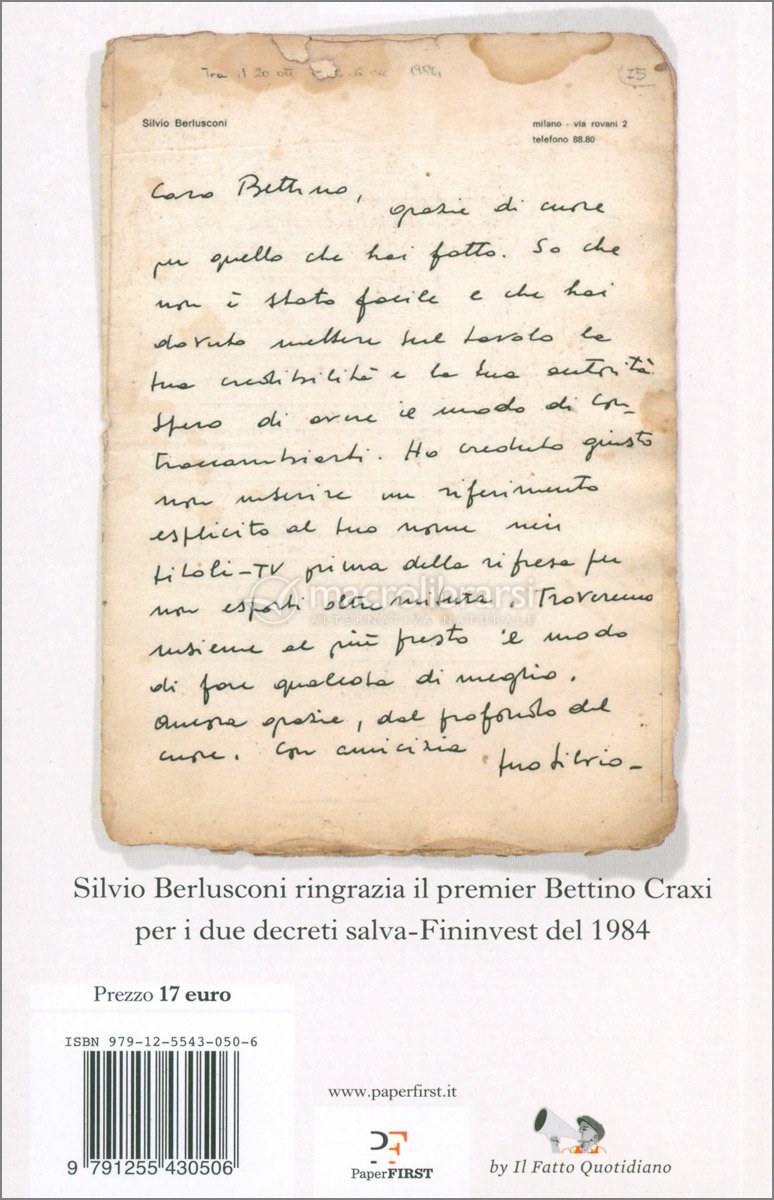 Tra il 20 ott e il 6 dic 1984
75
Silvio Berlusconi
milano - via rovani 2
telefono 88.60
Caro Bettino,
grazie di cuore
per quello che hai fatto. So che
non è stato facile e che hai
dovuto mettere sul tavolo la
tua credibilità e la tua autorità.
Spero di avere il modo di con-
traccambiarti. Ho creduto giusto
non inserire un riferimento
esplicito al tuo nome nei
titoli-TV prima della ripresa per
non esporti oltre misura. Troveremo
insieme al più presto il modo
di fare qualcosa di meglio.
Ancora grazie, dal profondo del
cuore. Con amicizia
tuo Silvio -
macrolibrarsi
ALTERNATIVA NATURALE
Silvio Berlusconi ringrazia il premier Bettino Craxi
per i due decreti salva-Fininvest del 1984
Prezzo 17 euro
ISBN 979-12-5543-050-6
9 791255 430506
www.paperfirst.it
PF
PaperFIRST
by Il Fatto Quotidiano